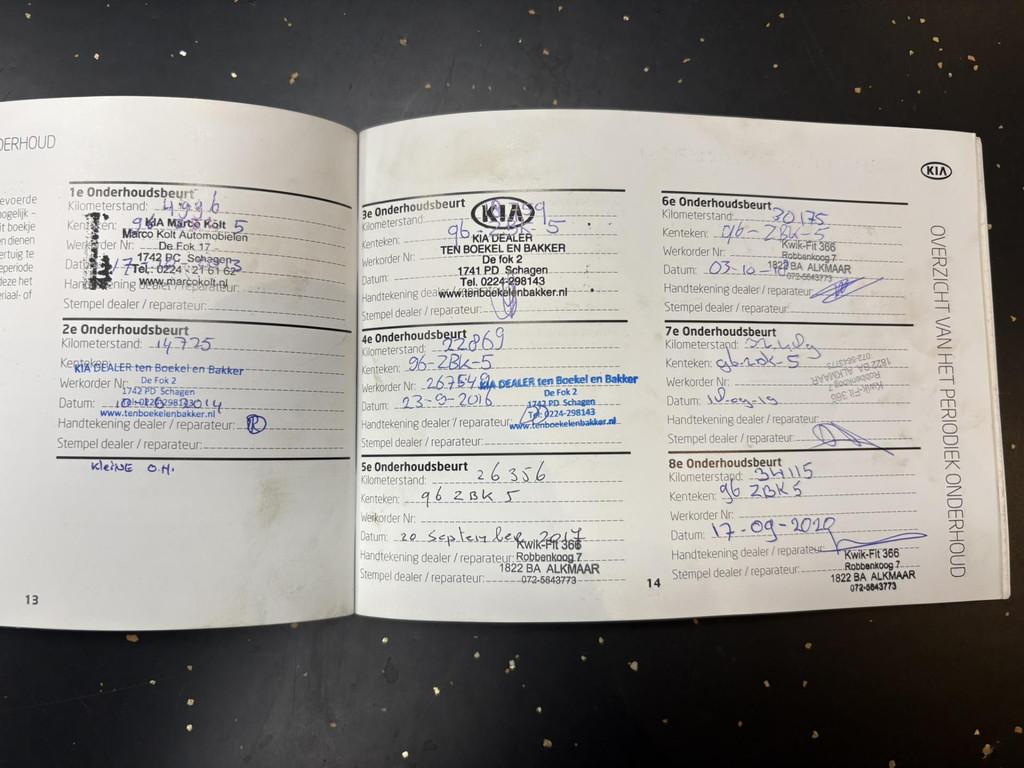 DERHOUD
evoerde
ogelijk -
it boekje
en dienen
ertuig te
periode
deze het
eriaal- of
1e Onderhoudsbeurt
Kilometerstand: 4936
Kenteken: 96 5
KIA Marco Kolt
Marco Kolt Automobielen
Werkorder Nr:
De Fok 17
1742 PC Schagen
Datum: 17
Tel.: 0224 - 21 61 62
Handtekening dealer / reparateur:
www.marcokolt.nl
Stempel dealer / reparateur:
2e Onderhoudsbeurt
Kilometerstand: 14725
Kenteken:
KIA DEALER ten Boekel en Bakker
Werkorder Nr: De Fok 2
1742 PD Schagen
Datum: 2014
www.tenboekelenbakker.nl
Handtekening dealer / reparateur: R
Stempel dealer / reparateur:
Kleine O.H.
13
3e Onderhoudsbeurt
Kilometerstand:
KIA
Kenteken: 96-ZBK-5
KIA DEALER
Werkorder Nr: TEN BOEKEL EN BAKKER
De fok 2
Datum: 1741 PD Schagen
Tel. 0224-298143
Handtekening dealer / reparateur:
www.tenboekelenbakker.nl
Stempel dealer / reparateur:
4e Onderhoudsbeurt
Kilometerstand: 22869
Kenteken: 96-ZBK-5
Werkorder Nr: 26754
KIA DEALER ten Boekel en Bakker
De Fok 2
Datum: 23-9-2016
1742 PD Schagen
Tel. 0224-298143
Handtekening dealer / reparateur: www.tenboekelenbakker.nl
Stempel dealer / reparateur:
5e Onderhoudsbeurt
Kilometerstand: 26356
Kenteken: 96 ZBK 5
Werkorder Nr:
Datum: 20 September 2017
Kwik-Fit 366
Handtekening dealer / reparateur: Robbenkoog 7
Stempel dealer / reparateur: 1822 BA ALKMAAR
072-5643773
14
KIA
6e Onderhoudsbeurt
Kilometerstand: 30175
Kenteken: 96-ZBK-5
Kwik-Fit 366
Werkorder Nr: Robbenkoog 7
Datum: 03-10-18
1822 BA ALKMAAR
072-5643773
Handtekening dealer / reparateur:
Stempel dealer / reparateur:
7e Onderhoudsbeurt
Kilometerstand:
Kenteken: 96-ZBK-5
Werkorder Nr:
Kwik-Fit 366
Robbenkoog 7
1822 BA ALKMAAR
072-5643773
Datum:
Handtekening dealer / reparateur:
Stempel dealer / reparateur:
8e Onderhoudsbeurt
Kilometerstand: 34115
Kenteken: 96 ZBK 5
Werkorder Nr:
Datum: 17-09-2020
Handtekening dealer / reparateur:
Kwik-Fit 366
Robbenkoog 7
Stempel dealer / reparateur: 1822 BA ALKMAAR
072-5643773
OVERZICHT VAN HET PERIODIEK ONDERHOUD